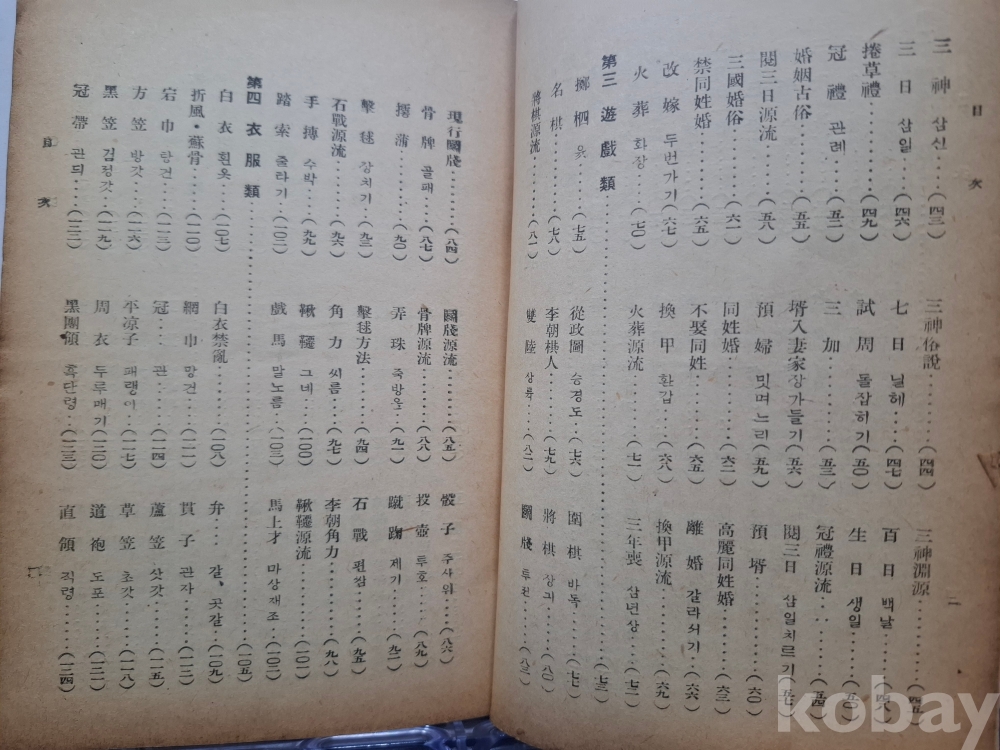 目次
二
三神 삼신……(四三) 三神俗說……(四四) 三神淵源……(四五)
三日 삼일……(四六) 七日 닐헤……(四七) 百日 백날……(四八)
捲草禮……(四九) 試周 돌잡히기……(五〇) 生日 생일……(五〇)
冠禮 관례……(五二) 三加……(五三) 冠禮源流……(五四)
婚姻古俗……(五五) 壻入妻家 장가들기……(五六) 閱三日 삼일치르기(五七)
閱三日源流……(五八) 預婦 밋며느리……(五九) 預壻……(六〇)
三國婚俗……(六一) 同姓婚……(六二) 高麗同姓婚
禁同姓婚……(五五) 不娶同姓……(六五) 離婚 갈라서기……(六六)
改嫁 두번가기……(六七) 換甲 환갑……(六八) 換甲源流……(六九)
火葬 화장……(七〇) 火葬源流……(七一) 三年喪 삼년상……(七二)
第三 遊戲類……(七三)
擲柶 윷……(七五) 從政圖 승경도……(七六) 圍棋 바독……(七七)
名棋……(七八) 李朝棋人……(七九) 將棋 상긔……(八〇)
將棋源流……(八一) 雙陸 상륙……(八二) 鬪牋 투전……(八三)
現行鬪牋……(八四) 鬪牋源流……(八五) 骰子 주사위……(八六)
骨牌 골패……(八七) 骨牌源流……(八八) 投壺 투호……(八九)
摴蒲……(九〇) 弄珠 죽방울……(九一) 蹴踘 제기……(九二)
擊毬 장치기……(九三) 擊毬方法……(九四) 石戰 편쌈……(九五)
石戰源流……(九六) 角力 씨름……(九七) 李朝角力……(九八)
手搏 수박……(九九) 鞦韆 그네……(一〇〇) 鞦韆源流……(一〇一)
踏索 줄타기……(一〇二) 戲馬 말노름……(一〇三) 馬上才 마상재조……(一〇三)
第四 衣服類……(一〇五)
白衣 흰옷……(一〇七) 白衣禁亂……(一〇八) 弁…… 갈、곳갈……(一〇九)
折風・蘇骨……(一一〇) 網巾 망건……(一一一) 貫子 관자……(一一二)
宕巾 탕건……(一一三) 冠…… 관……(一一四) 蘆笠 삿갓……(一一五)
方笠 방갓……(一一六) 平凉子 패랭이……(一一七) 草笠 초갓……(一一八)
黑笠 검정갓……(一一九) 周衣 두루매기……(一二〇) 道袍 도포……(一二一)
冠帶 관듸……(一二二) 黑團領 흑단령……(一二三) 直領 직령……(一二四)
目次
kobay